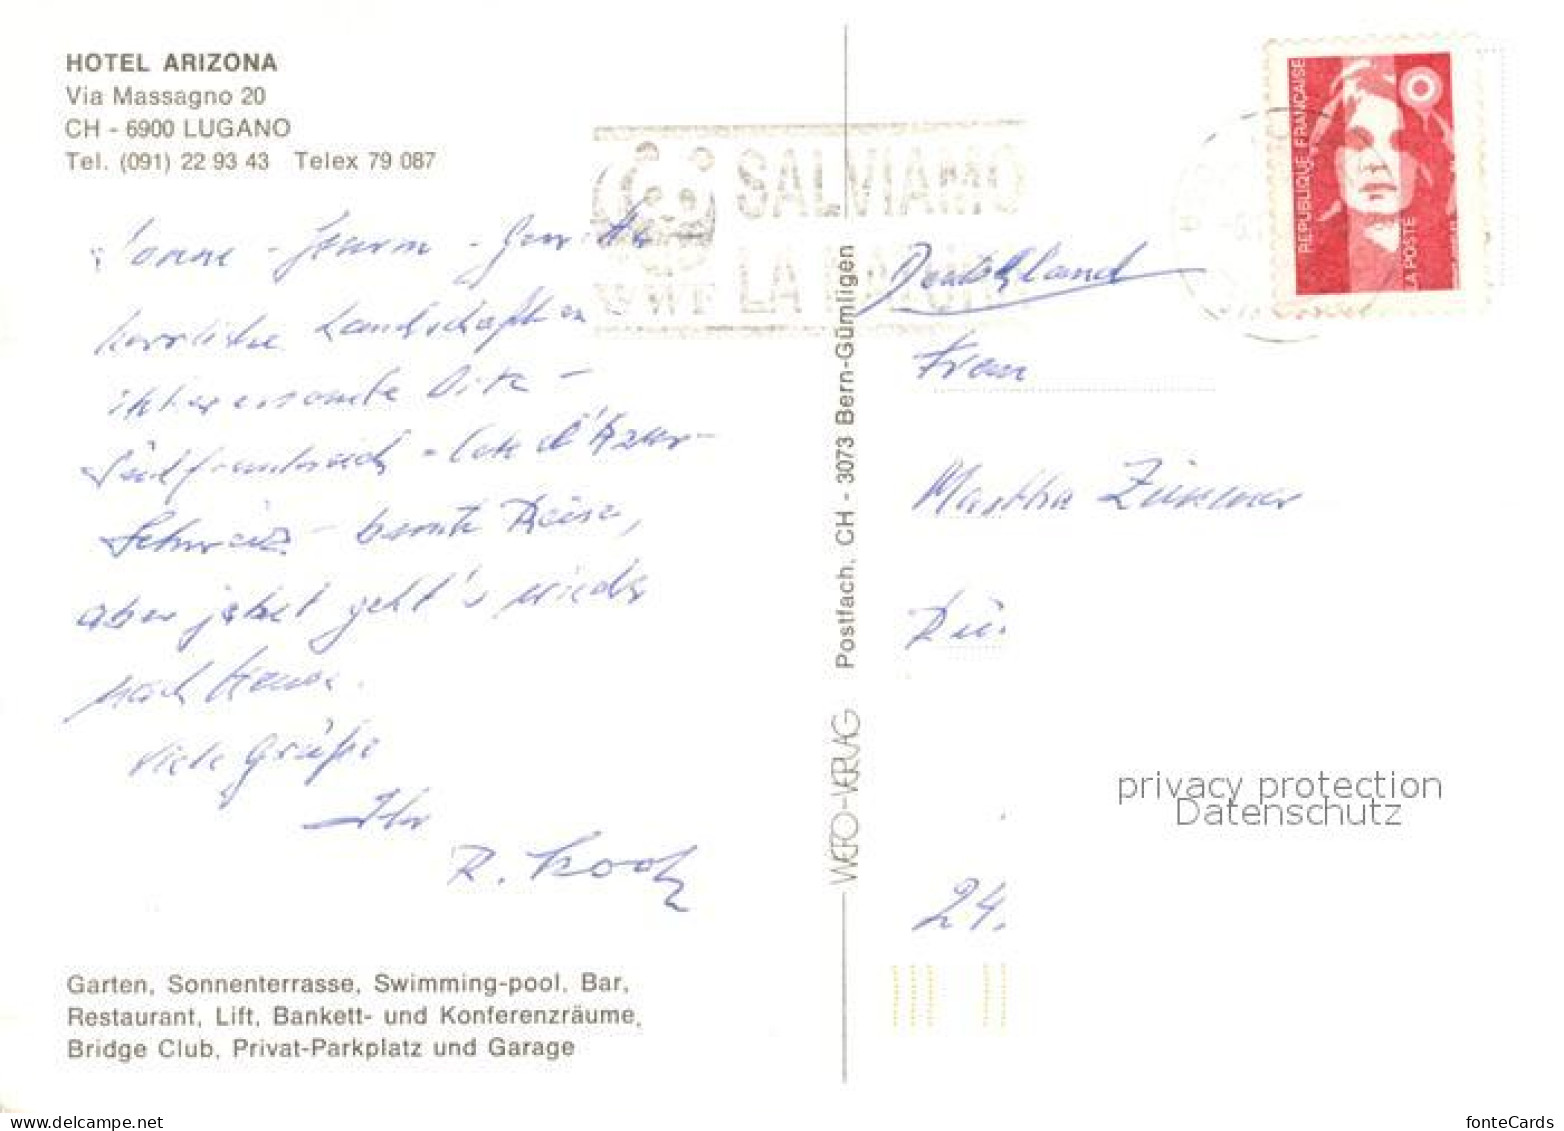 HOTEL ARIZONA
Via Massagno 20
CH - 6900 LUGANO
Tel. (091) 22 93 43 Telex 79 087
Sonne - Sturm - Gewitter
herrliche Landschaften
interessante Orte -
Südfrankreich - Cote d'Azur -
Schweiz - bunte Reise,
aber jetzt geht's wieder
nach Hause.
Viele Grüße
Ihr
R. Kooh
Garten, Sonnenterrasse, Swimming-pool, Bar,
Restaurant, Lift, Bankett- und Konferenzräume,
Bridge Club, Privat-Parkplatz und Garage
WERO-VERLAG Postfach, CH - 3073 Bern-Gümligen
SALVIAMO
WWF LA
REPUBLIQUE FRANÇAISE
LA POSTE
Deutschland
Frau
Martha Zimmer
24.
privacy protection
Datenschutz
www.delcampe.net
fonteCards